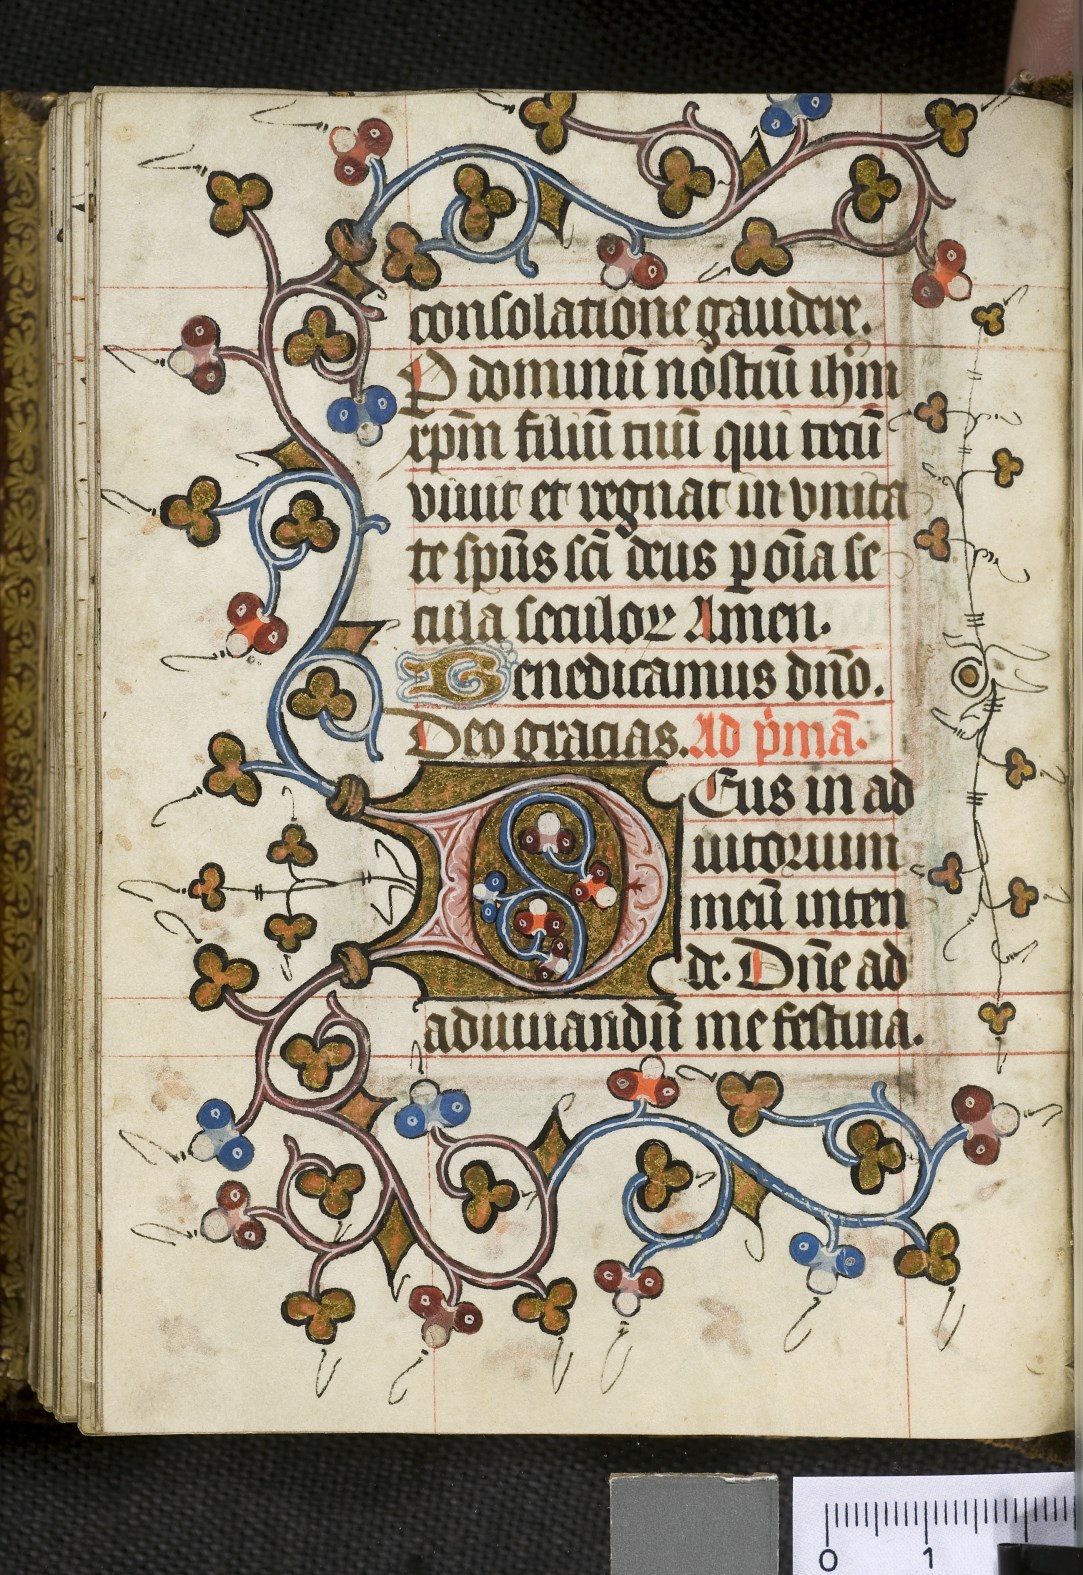 consolatione gaudere.
P dominū nostrū ihm
xpm filiū tuū qui tecū
viuit et regnat in vnita
te spūs sci deus p oīa se
cula seculoꝝ Amen.
Benedicamus dno.
Deo gracias. Ad pͥmā.
Deus in ad
iutorium
meū inten
de. Dne ad
adiuuandū me festina.
0 1